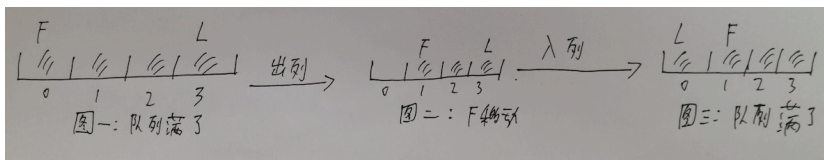 F L
0 1 2 3
图一:队列满了
出列
F L
0 1 2 3
图二:F移动
入列
L F
0 1 2 3
图三:队列满了